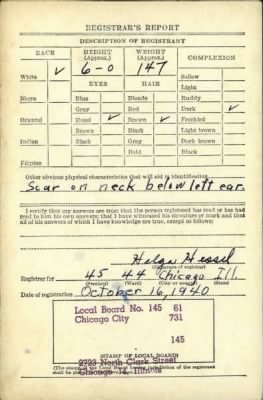 REGISTRAR'S REPORT
DESCRIPTION OF REGISTRANT
RACE
HEIGHT (Approx.)
WEIGHT (Approx.)
COMPLEXION
White ✓
6-0
147
Sallow
EYES
HAIR
Light
Negro
Blue
Blonde
Ruddy
Gray
Red
Dark ✓
Oriental
Hazel ✓
Brown ✓
Freckled
Brown
Black
Light brown
Indian
Black
Gray
Dark brown
Bald
Black
Filipino
Other obvious physical characteristics that will aid in identification
Scar on neck below left ear.
I certify that my answers are true; that the person registered has read or has had
read to him his own answers; that I have witnessed his signature or mark and that
all of his answers of which I have knowledge are true, except as follows:
Helge Hessel
(Signature of registrar)
Registrar for 45 44 Chicago Ill.
(Precinct) (Ward) (City or county) (State)
Date of registration October 16, 1940
Local Board No. 145 61
Chicago City 731
145
2723 North Clark Street
(STAMP OF LOCAL BOARD)
Chicago 14, Illinois
(The stamp of the Local Board having jurisdiction of the registrant
shall be